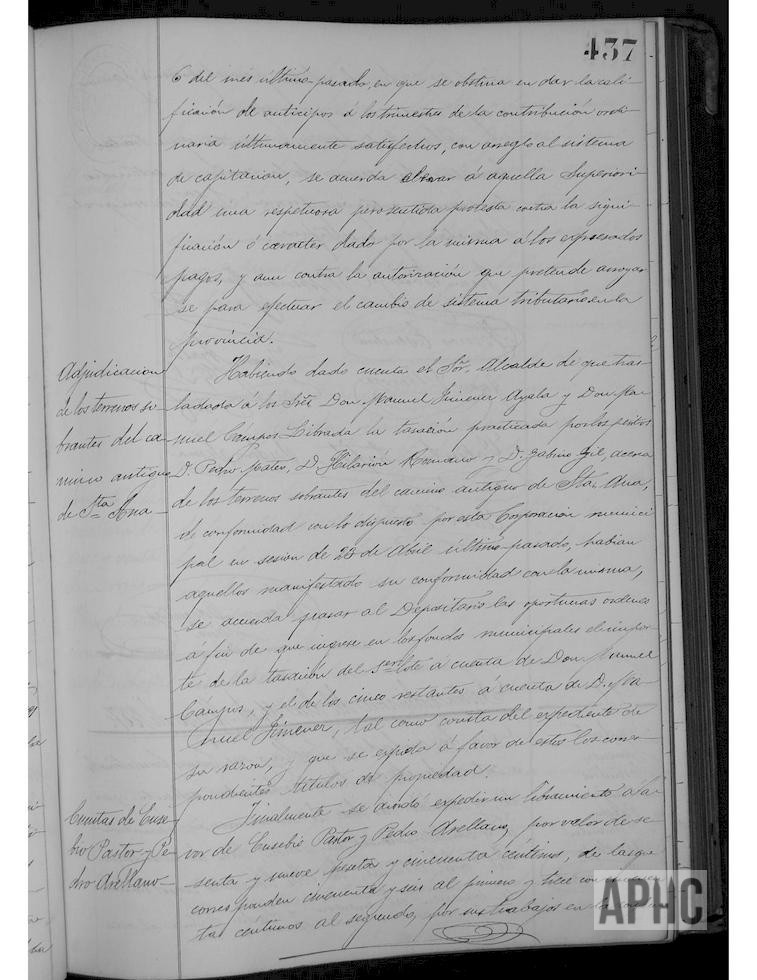 437
6 del mes último pasado, en que se obstina en dar la cali-
ficación de anticipos á los trimestres de la contribución ordi-
naria últimamente satisfechos, con arreglo al sistema
de capitación, se acuerda elevar á aquella Superiori-
dad una respetuosa pero sentida protesta contra la signi-
ficación ó carácter dado por la misma á los expresados
pagos, y aun contra la autorización que pretende arrogar
se para efectuar el cambio de sistema tributario en la
provincia.
Adjudicacion
de los terrenos so
brantes del ca-
mino antiguo
de Sta. Ana—
Habiendo dado cuenta el Sor. Alcalde de que tras-
ladada á los Sres. Don Manuel Jimenez Ayala y Don Ma-
nuel Campos Librada la tasación practicada por los peritos
D. Pedro Mateo, D. Hilarión Romano y D. Gabino Gil, acerca
de los terrenos sobrantes del camino antiguo de Sta. Ana,
de conformidad con lo dispuesto por esta Corporación munici
pal en sesion de 23 de Abril último pasado, habian
aquellos manifestado su conformidad con la misma,
se acuerda pasar al Depositario las oportunas ordenes
a fin de que ingrese en los fondos municipales el impor-
te de la tasación del lote á cuenta de Don Manuel
Campos, y el de los cinco restantes á cuenta de D. Ma-
nuel Jimenez, tal como consta del expediente de
su razon, y que se expida á favor de estos los corres
pondientes títulos de propiedad.
Cuentas de Euse
bio Pastor y Pe
dro Arellano—
Finalmente se acordó expedir un libramiento á fa-
vor de Eusebio Pastor y Pedro Arellano, por valor de se-
senta y nueve pesetas y cincuenta céntimos, de las que
corresponden cincuenta y seis al primero y trece con cincuen
ta céntimos al segundo, por sus trabajos en la
APHC